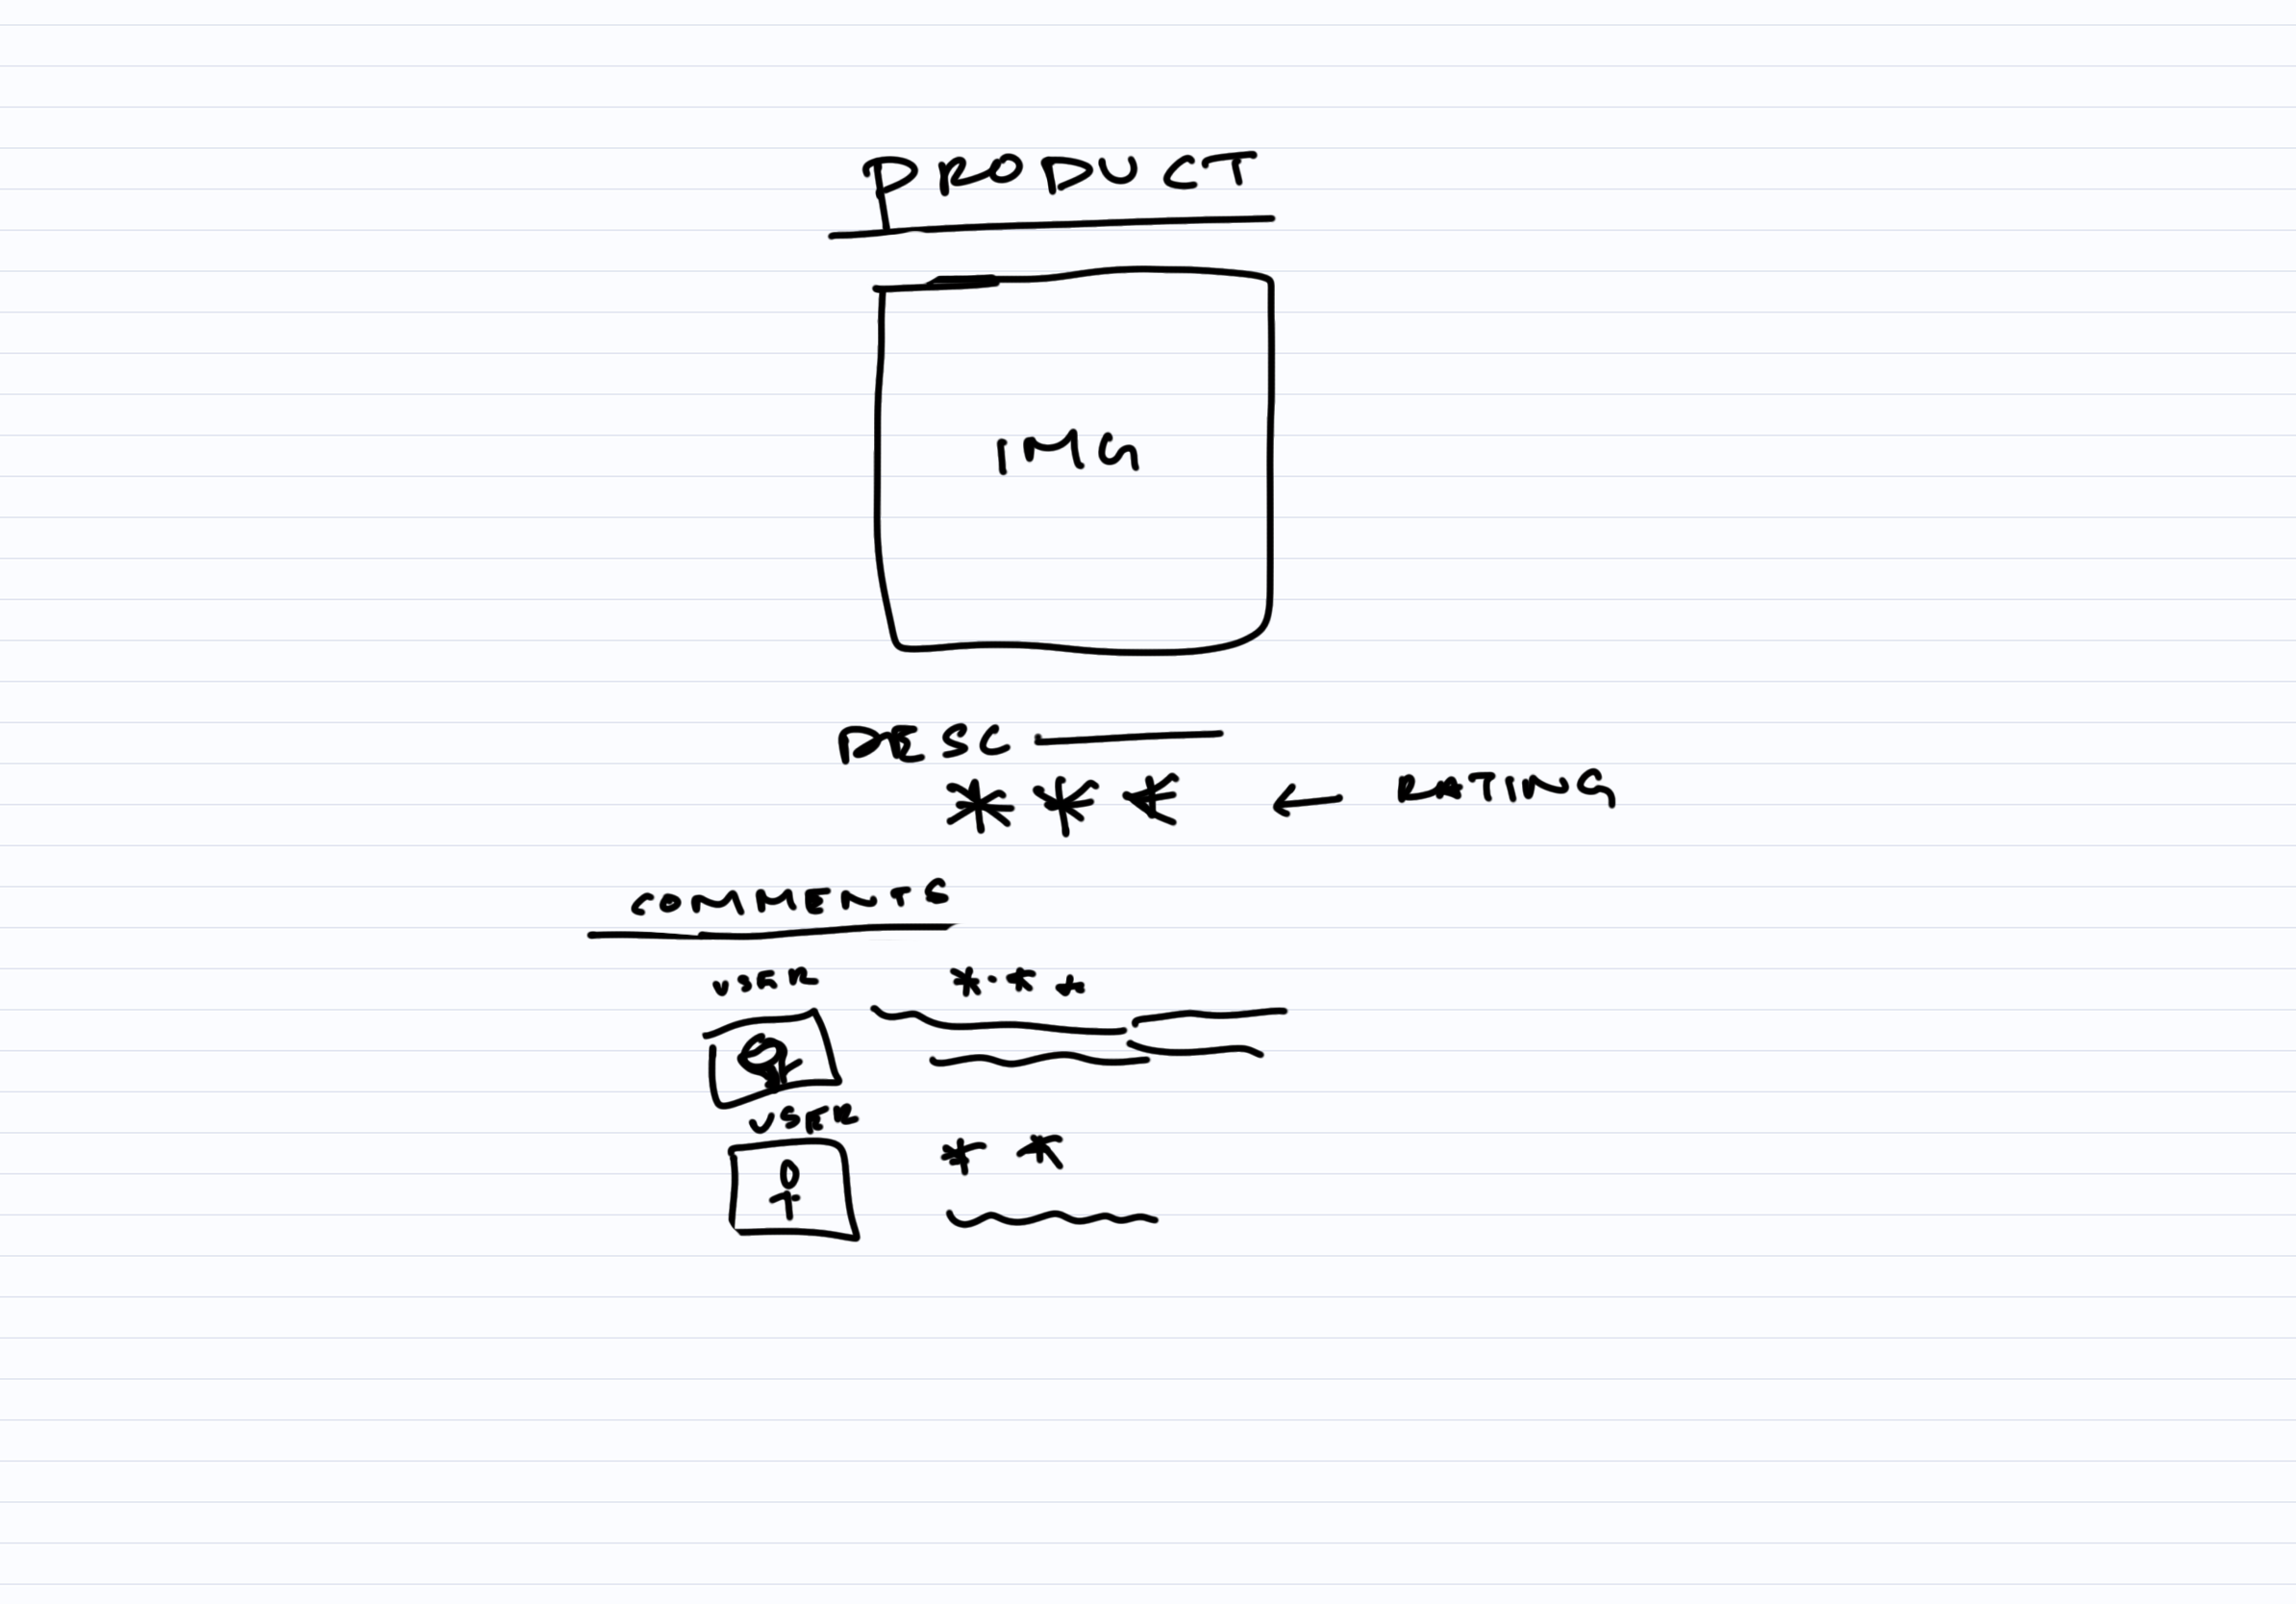 PRODUCT
IMG
DESC
* * * ← RATING
COMMENTS
USER
* * *
USER
* *